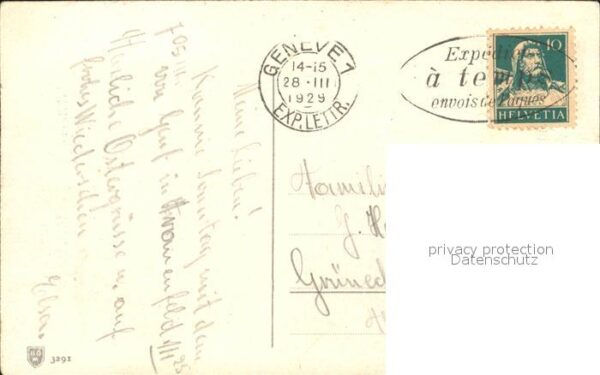 GENÈVE 1
14-15
28·III
1929
EXP. LETTR.
Expédiez
à temps
envois de Pâques
10
HELVETIA
Meine Lieben!
Komme Sonntag mit dem
von Genf in Frauenfeld
Herzliche Ostergrüsse u. auf
frohes Wiedersehen
Elsa.
Familie
G. H
privacy protection
Datenschutz
3291